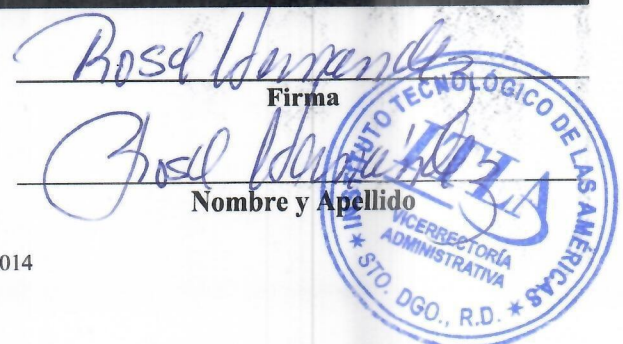 Rosa Hernandez
Firma
Rosa Hernández
Nombre y Apellido
INSTITUTO TECNOLÓGICO DE LAS AMÉRICAS
ITLA
VICERRECTORÍA
ADMINISTRATIVA
* STO. DGO., R.D. *
014